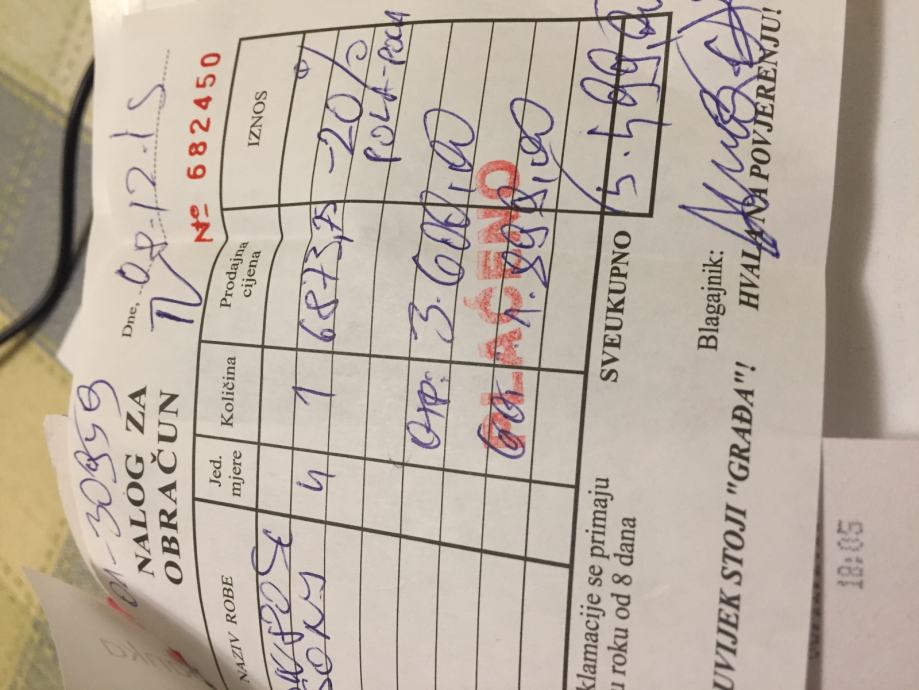 -30959
NALOG ZA
OBRAČUN
Dne, 08-12-15
TV
Nº 682450
NAZIV ROBE
Jed.
mjere
Količina
Prodajna
cijena
IZNOS
SONY 4 1 6873,75 -20%
POLA-POLA
OTP: 3.600,00
GOT. 1.899,00
PLAĆENO
SVEUKUPNO 5.499,00
klamacije se primaju
u roku od 8 dana
Blagajnik:
UVIJEK STOJI "GRAĐA"!
HVALA NA POVJERENJU!
18:05